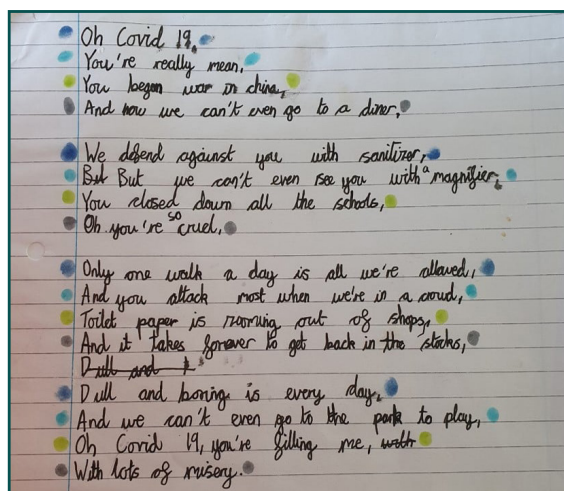 Oh Covid 19,
You're really mean,
You began war in china,
And now we can't even go to a diner,
We defend against you with sanitizer,
But But we can't even see you with a magnifier,
You closed down all the schools,
Oh you're so cruel,
Only one walk a day is all we're allowed,
And you attack most when we're in a croud,
Toilet paper is rooming out of shops,
And it takes forever to get back in the stocks,
Dull and
Dull and boring is every day,
And we can't even go to the park to play,
Oh Covid 19, you're filling me, with
With lots of misery.